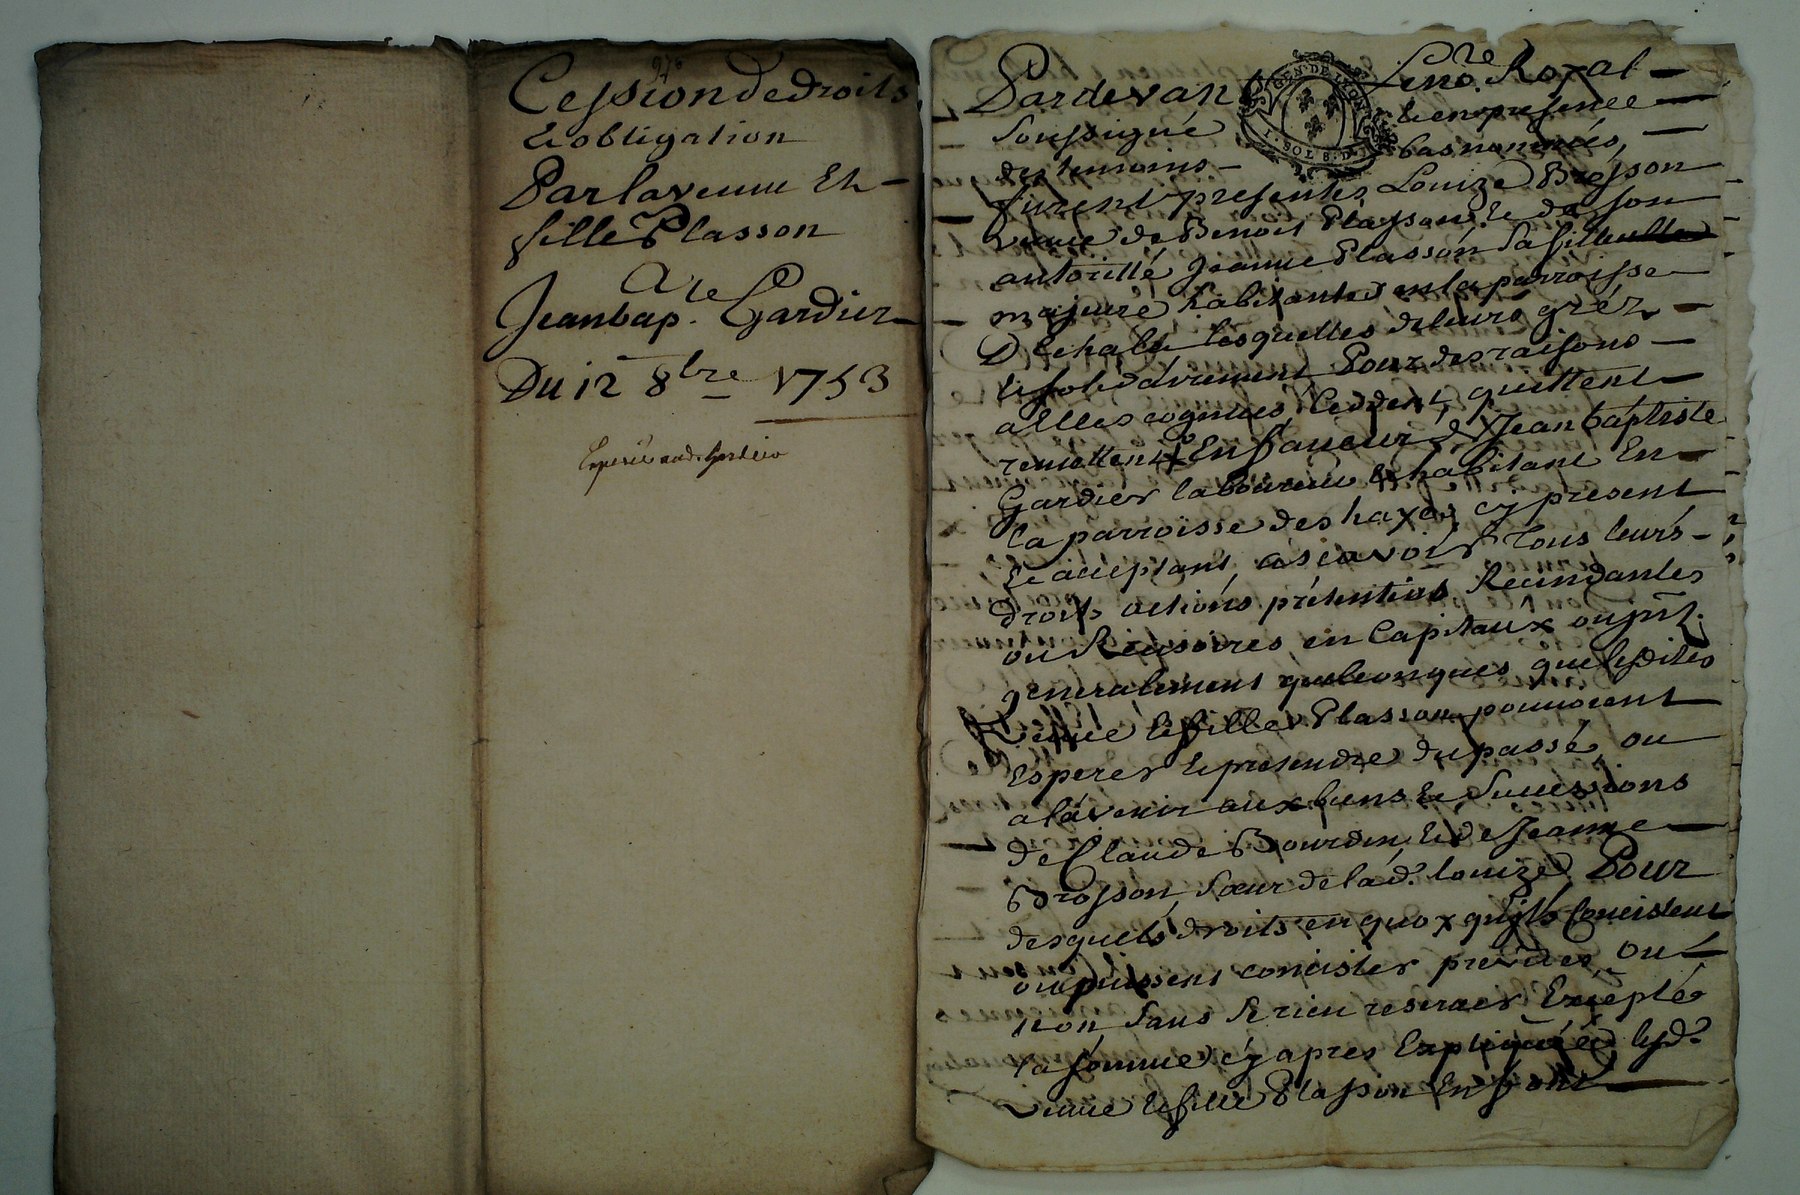 Cession de droits
et obligation
Par la veuve et
fille Plasson
A
Jean bap.te Gardier
Du 12 8bre 1753
Par devant Le no.re Royal
soussigné et en presence
des temoins bas nommés,
GEN. DE LYON
1. SOL 8. D.
furent presentes Louize Brosson
veuve de Benoit Plasson, et de son
autorité Jeanne Plasson sa fille
majeure habitantes en la parroisse
D'echala lesquelles de leurs gréz
et solidairement Pour des raisons
a elles cogneues, ceddent, quittent
remettent En faveur de Jean baptiste
Gardier laboureur habitant En
la parroisse des hayes cy present
et acceptant, a scavoir Tous leurs
droits actions prétentions Recindantes
ou Recisoires en Capitaux ou
generalement quelconques que lesdites
Veuve et fille Plasson pouvoient
Esperer et pretendre du passé, ou
a l'avenir aux biens et Successions
de Claude Bourdin et de Jeanne
Brosson sœur de lad. Louize Pour
desquels droits en quoy qu'ils Concistent
ou puissent concister prevues, ou
non sans se rien reserver Exceptée
la somme cy apres Expliquée, lesd.
veuve et fille Plasson En font